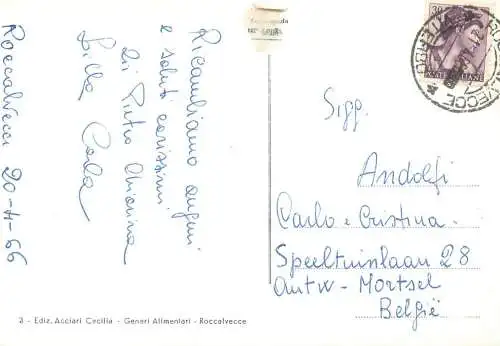 Roccalvecce 20-4-66
Ricambiamo auguri
e saluti carissimi
Pietro
Carla
Sigg.
Andolfi
Carlo e Cristina.
Speeltuinlaan 28
Antw - Mortsel
België
30
POSTE ITALIANE
VITERBO
3 - Ediz. Acciari Cecilia - Generi Alimentari - Roccalvecce